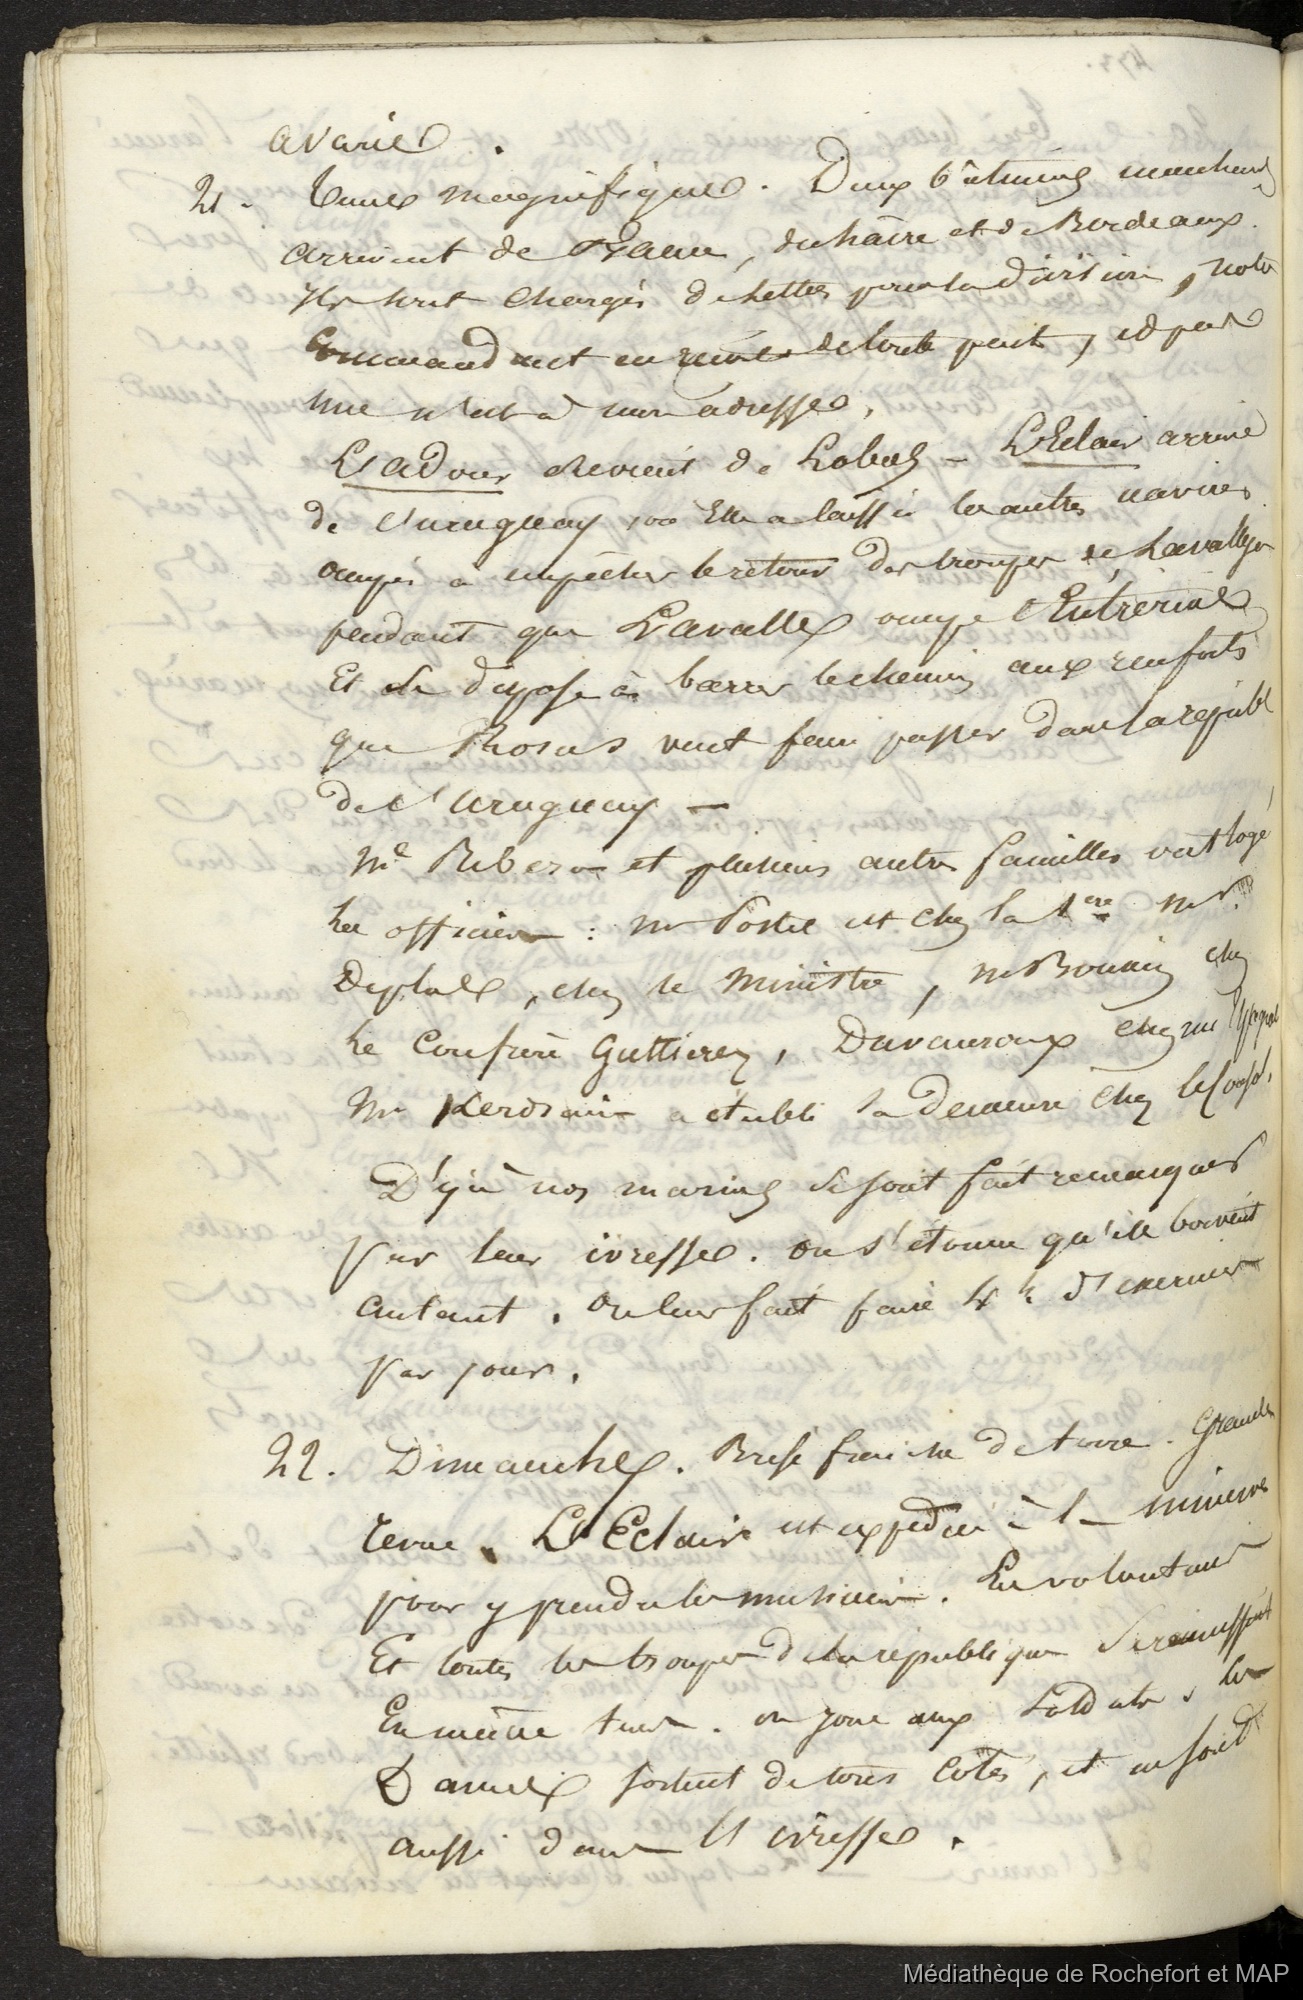 avarie.
21. Tems magnifique. Deux bâtimens marchands
arrivent de France, du hâvre et de Bordeaux.
Ils sont chargés de lettres pour la division, notre
Commandant en de toute part, et pas
une n'est à mon adresse.
L'adour revient de Lobos - L'Eclair arrive
de l'uruguay, Elle a laissé les autres navires
occupés a empêcher le retour des troupes de Lavalleja
pendant que Lavalle occupe l'Entrerios
Et se dispose à barrer le chemin aux renforts
que Rosas veut faire passer dans la républ
de l'uruguay -
Me Ribero et plusieurs autres familles ont logé
les officiers : mr Postel est chez la 1ere mr
chez le Ministre, mr chez
le Confrere Guttierez, chez un Espagnol
Mr a établi sa demeure chez le Consul.
Déjà nos marins se sont fait remarquer
par leur ivresse. on s'étonne qu'ils boivent
autant. On leur fait faire 4 h. d'exercice
par jour.
22. Dimanche. Brise fraiche de terre. Grande
revue. L'Eclair est expédiée à la minerve
pour y prendre les musiciens. Les volontaires
Et toutes les troupes de la république se réunissent
En même tems. on joue aux soldats, les
Dames sortent de tous cotés, et on finit
aussi dans l'ivresse.
Médiathèque de Rochefort et MAP